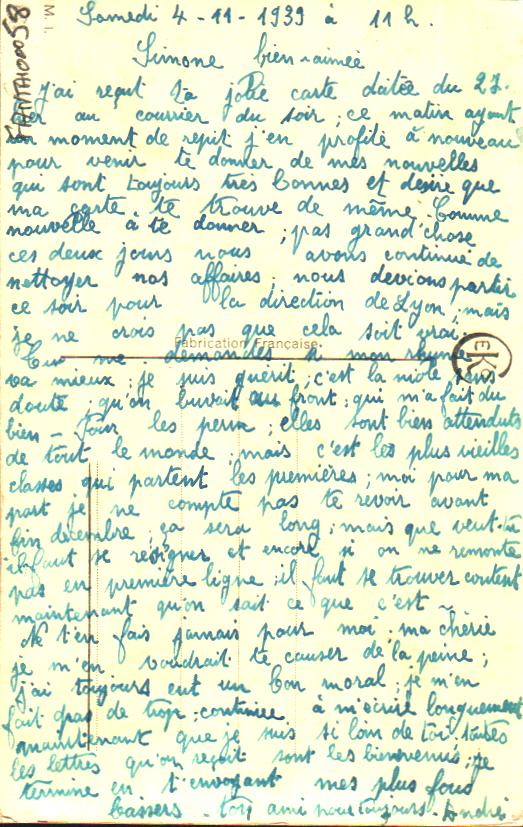 M. I.
FRANTAH00058
Samedi 4-11-1939 à 11 h.
Simone bien-aimée
J'ai reçut ta jolie carte datée du 27.
hier au courrier du soir ; ce matin ayant
un moment de repit j'en profite à nouveau
pour venir te donner de mes nouvelles
qui sont toujours très bonnes et desire que
ma carte te trouve de même. Comme
nouvelle à te donner ; pas grand'chose
ces deux jours nous avons continué de
nettoyer nos affaires ; nous devions partir
ce soir pour la direction de Lyon ; mais
je ne crois pas que cela soit vrai.
Fabrication Française
EKC
Tu me demandes si mon rhume
va mieux ; je suis guérit ; c'est la niole sans
doute ; qu'on buvait au front ; qui m'a fait du
bien - Pour les perms ; elles sont bien attenduts
de tout le monde ; mais c'est les plus vieilles
classes qui partent les premières ; moi pour ma
part je ne compte pas te revoir avant
fin décembre ; ça sera long ; mais que veut-tu
il faut se resigner et encore si on ne remonte
pas en première ligne ; il faut se trouver content
maintenant qu'on sait ce que c'est -
Ne t'en fais jamais pour moi ; ma chérie
je m'en voudrait te causer de la peine ;
j'ai toujours eut un bon moral ; je m'en
fait pas de trop ; continue à m'écrire longuement
maintenant que je suis si loin de toi. toutes
les lettres qu'on reçoit sont les bienvenus ; je
termine en t'envoyant mes plus fous
baisers - ton ami pour toujours - André